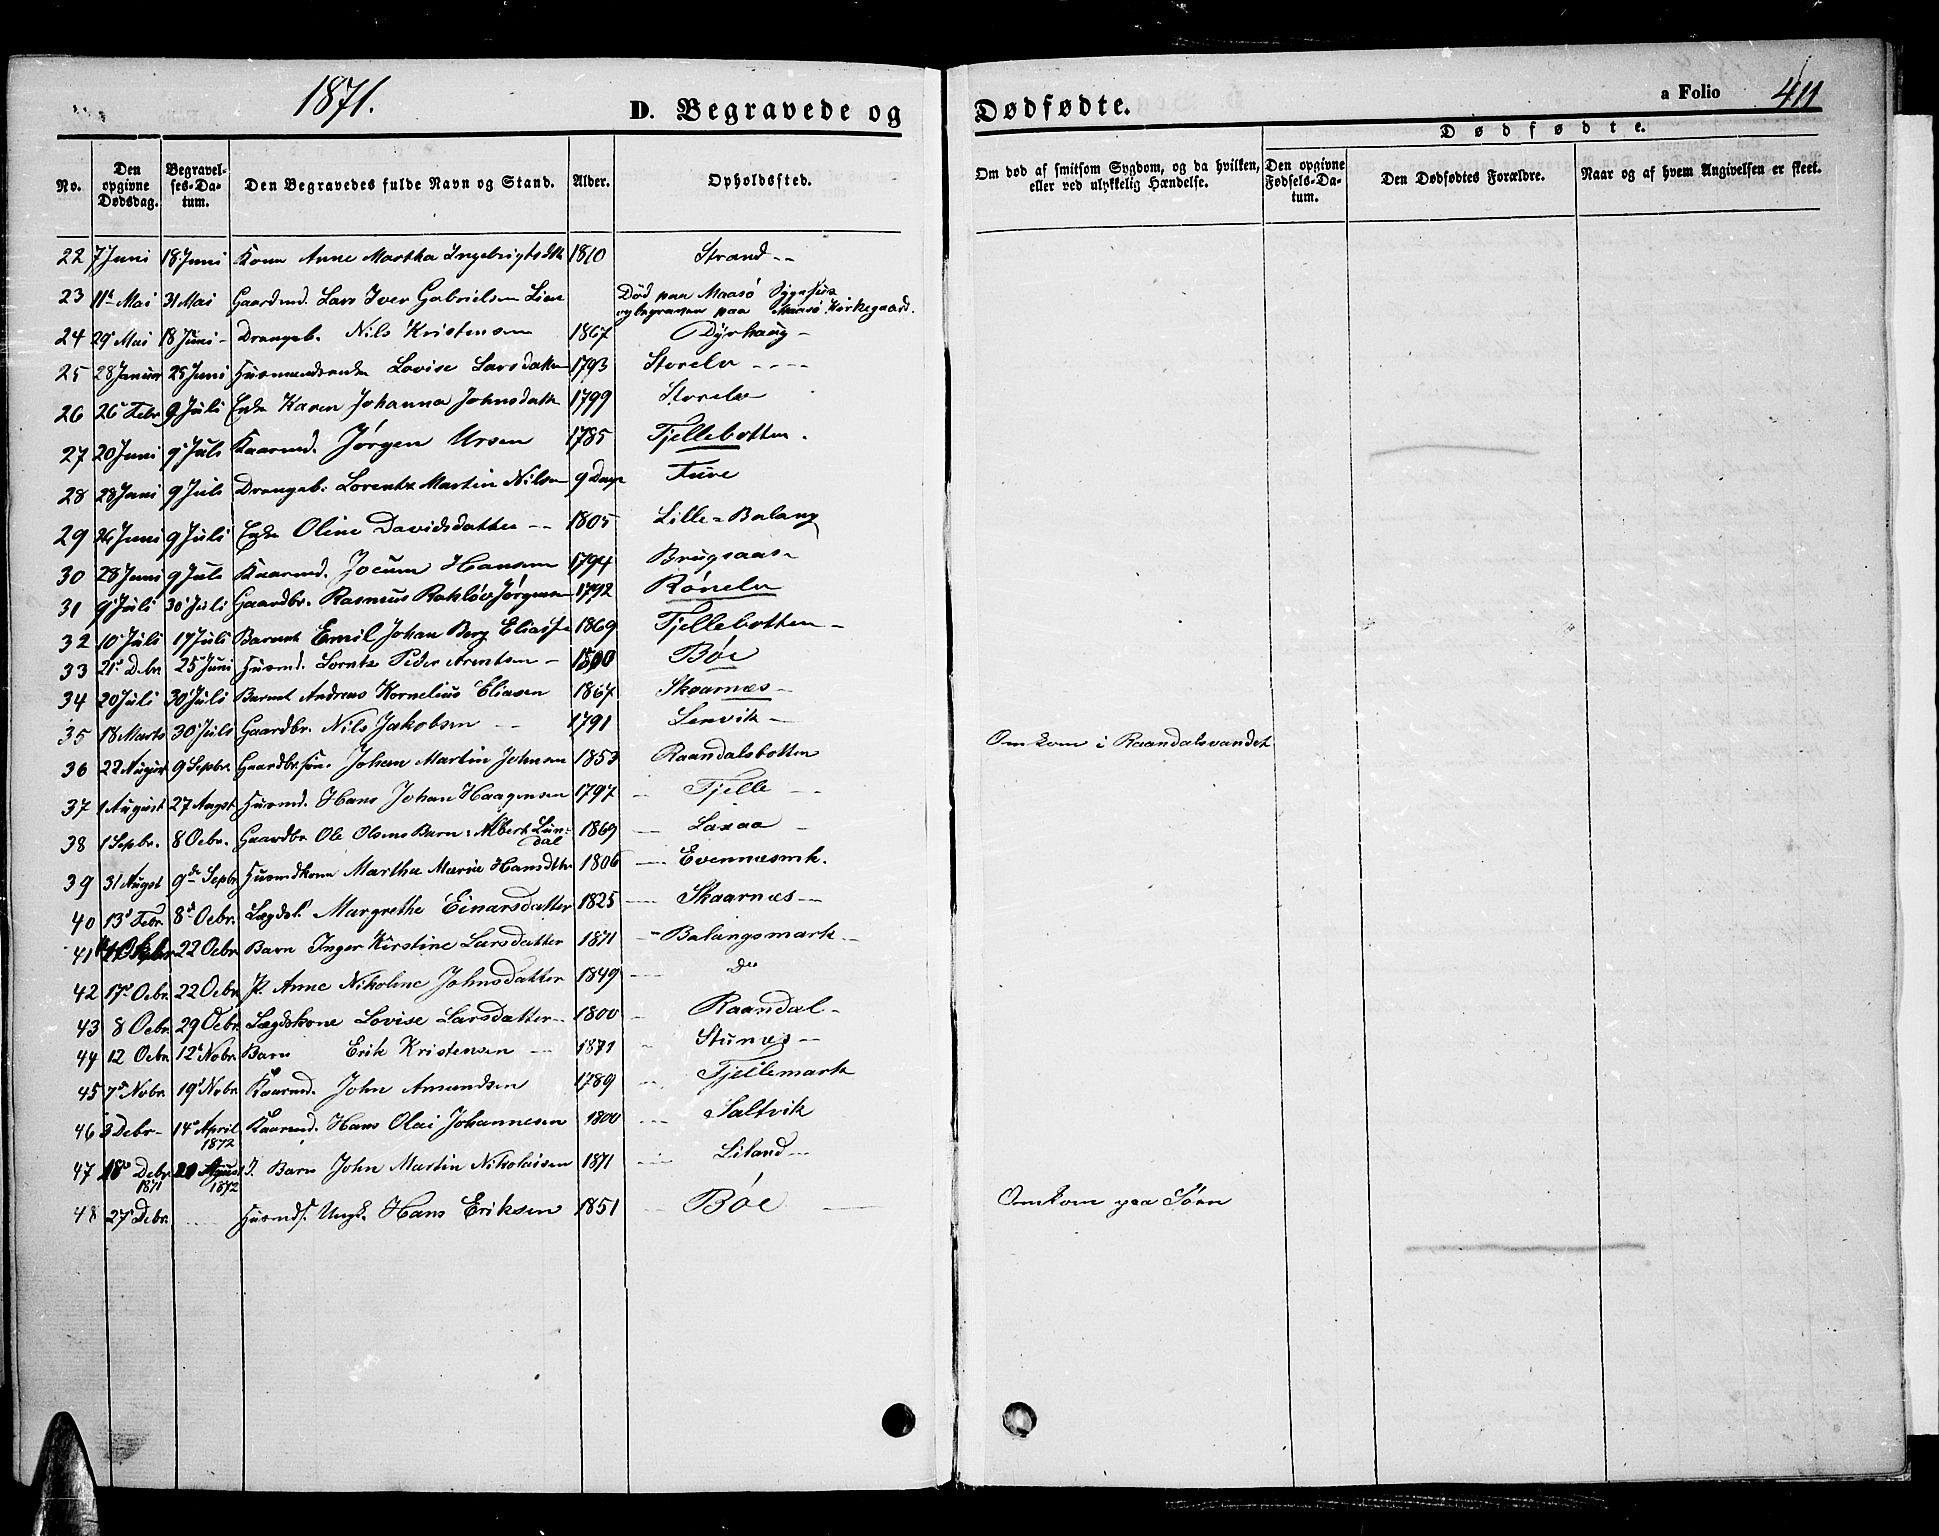 1871.
D. Begravede og Dødfødte.
a Folio 411
Dødfødte.
No. Den opgivne Dødsdag. Begravelses-Datum. Den Begravedes fulde Navn og Stand. Alder. Opholdssted. Om død af smitsom Sygdom, og da hvilken, eller ved ulykkelig Hændelse. Den opgivne Fødsels-Datum. Den Dødfødtes Forældre. Naar og af hvem Angivelsen er skeet.
22 7 Juni 18 Juni Kona Anne Martha Ingebrigtsdtr 1810 Strand --
23 11t Mai 31 Mai Gaardmd. Lars Iver Gabrielsen Lian Død paa Maasø Sygehus
og begraven paa Maasø Kirkegaard.
24 29 Mai 18 Juni - Drengeb. Nils Kristensen 1867 Dyrhaug -
25 28 Januar 25 Juni Lovise Larsdatter 1793 Storelv ----
26 26 Febr. 9 Juli Enke Karen Johanna Johnsdatter 1799 Storelv
27 20 Juni 9 Juli Kaarmd. Jørgen Ursen 1785 Fjellebotten.
28 28 Juni 9 Juli Drengeb. Lorentz Martin Nilsen 9 Dage Ture
29 26 Juni 9 Juli Enke Oline Davidsdatter -- 1805 Lille-Balang
30 28 Juni 9 Juli Kaarmd. Jocum Hansen 1794 Brugsaas -
31 9 Juli 30 Juli Gaardbr. Rasmus Rokløv Jørgensen 1792 Rønelv
32 10 Juli 17 Juli Barnet Emil Johan Berg Eliass. 1869 Fjellebotten -
33 21 Debr. 25 Juni Husmd. Lorntz Peder Arntsen - 1800 Bøe
34 20 Juli 30 Juli Barnet Andreas Kornelius Eliasen 1867 Skaarnæs -
35 18 Marts 30 Juli Gaardbr. Nils Jakobsen -- 1791 Lenvik -
36 22 August 9 Sepbr. Gaardbr.søn. Johan Martin Johnsen 1853 Raandalsbotten Omkom i Raandalsvandet
37 1 August 27 Augst Husmd. Hans Johan Haagensen 1797 -- Fjelle --
38 1 Sepbr. 8 Ocbr. Gaardbr Ole Olsens Barn: Albert Lun-
dal 1869 -- Laxaa -
39 31 Augst 9de Sepbr Husmdkone Martha Marie Hansdtr 1806 --- Evennæsmk.
40 13 Febr. 8d Ocbr. Lægdsl. Margrethe Einarsdatter 1825 --- Skaarnæs --
41 22 Ocbr Barn Inger Kirstine Larsdatter 1871 -- Balangsmark --
42 17 Ocbr. 22 Ocbr. P. Anne Nikoline Johnsdatter 1849 --- do
43 8 Ocbr. 29 Ocbr. Lægdskone Lovise Larsdatter -- 1800 - Raandal -
44 12 Ocbr. 12 Nobr. Barn Erik Kristensen -- 1871 - Stunæs --
45 7 Nobr. 19 Nobr. Kaarmd. John Amundsen 1789 -- Fjellemark
46 3 Debr - 14 April
1872 Kaarmd. Hans Olai Johannesen 1800 --- Saltvik
47 18 Debr
1871 August
1872 Barn John Martin Nikolaisen 1871 --- Liland --
48 27 Debr. --- Husmds. Ungk. Hans Eriksen 1851 -- Bøe -- Omkom paa Søen